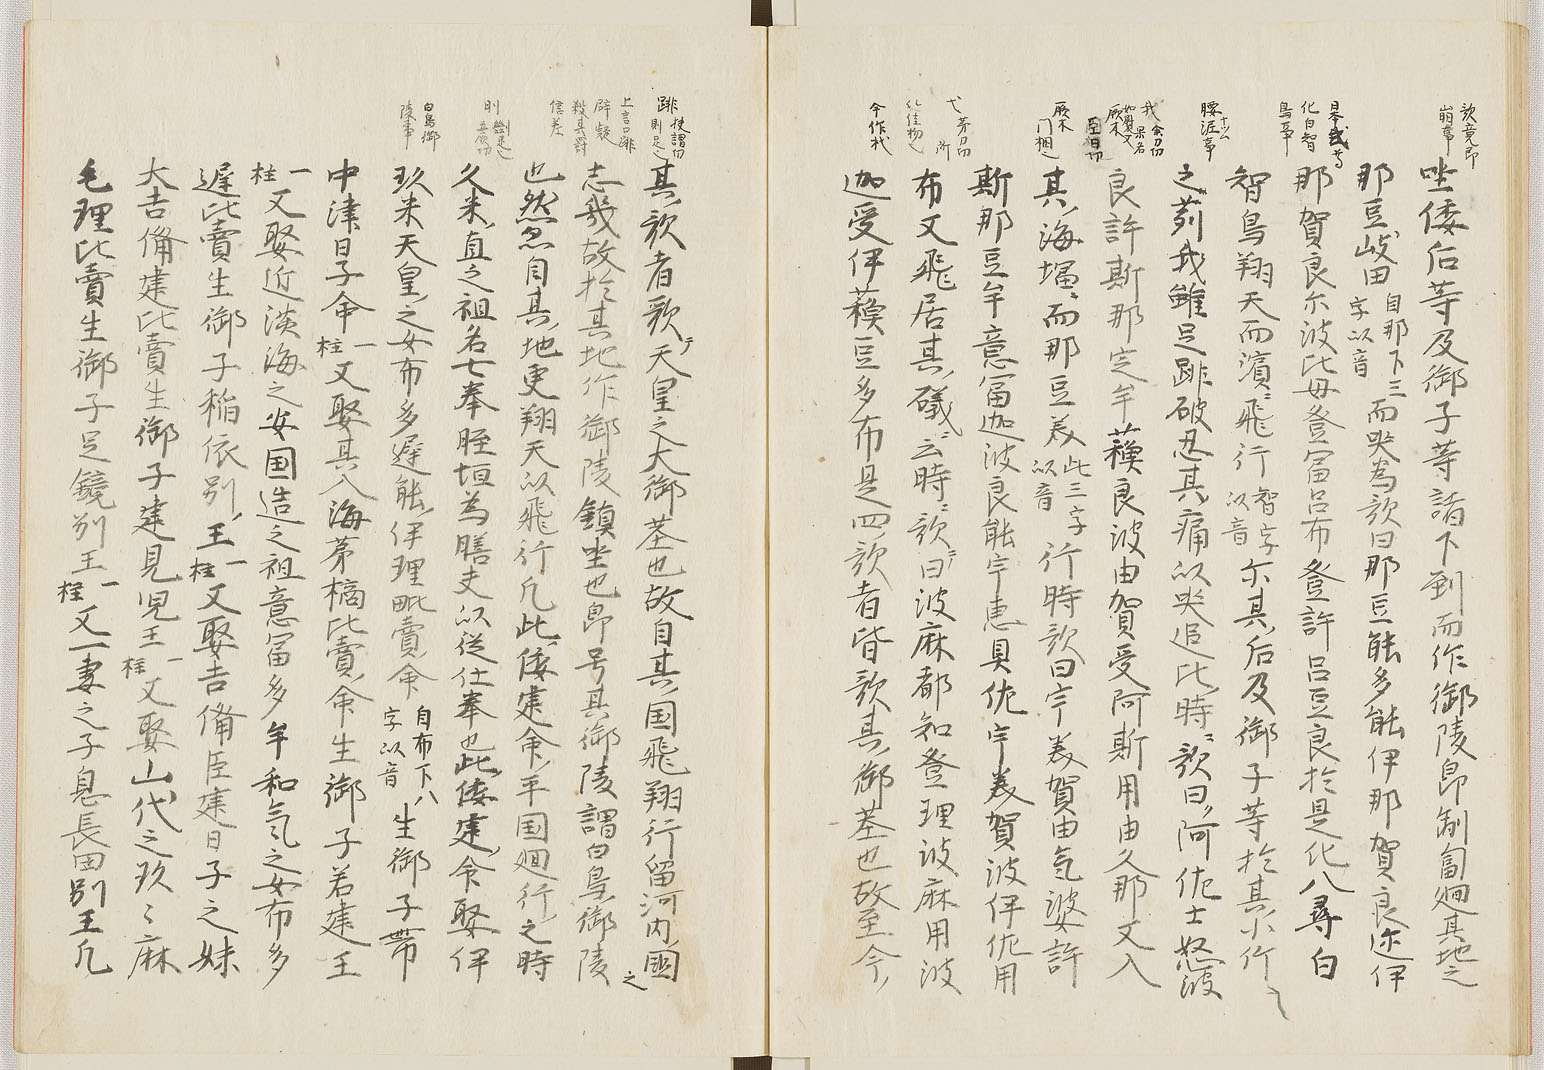 歌竟即
崩事
日本武尊
化白智
鳥事
腰泥事
我
厩木
今作杙
坐倭后等及御子等諸下到而作御陵即匍匐廻其地之
那豆岐田自那下三字以音而哭為歌曰那豆能多能伊那賀良迩伊
那賀良尓波比母登富呂布登許呂豆良於是化八尋白
智鳥翔天而濱飛行智字以音尓其后及御子等於其小竹
之苅我雖足跳破忍其痛以哭追此時歌曰阿佐士怒波
良許斯那定牟蘓良波由賀受阿斯用由久那又入
其海塩而那豆美此三字以音行時歌曰宇美賀由気婆許
斯那豆牟意富迦波良能宇恵具佐宇美賀波伊佐用
布又飛居其礒云時歌曰波麻都知登理波麻用波
迦受伊蘓豆多布是四歌者皆歌其御葬也故至今
跳
白鳥御
陵事
其歌者歌天皇之大御葬也故自其国飛翔行留河内國之
志幾故於其地作御陵鎮坐也即号其御陵謂白鳥御陵
也然忽自其地更翔天以飛行凡此倭建命平国廻行之時
久米直之祖名七拳脛恒為膳夫以従仕奉也此倭建命娶伊
玖米天皇之女布多遅能伊理毗賣命自布下八字以音生御子帯
中津日子命一柱又娶其入海弟橘比賣命生御子若建王
一柱又娶近淡海之安国造之祖意富多牟和氣之女布多
遅比賣生御子稲依別王一柱又娶吉備臣建日子之妹
大吉備建比賣生御子建見児王一柱又娶山代之玖々麻
毛理比賣生御子足鏡別王一柱又一妻之子息長田別王凡